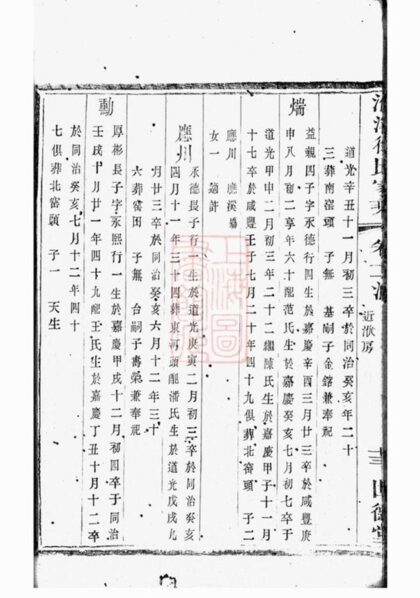 近漱房
道光辛丑十一月初三卒於同治癸亥年二十
三葬南窑頭 子無 基嗣子金鎔兼奉祀
煓
益親四子字永德行四生於嘉慶辛酉三月廿三卒於咸豐庚
申八月初二享年六十配范氏生於嘉慶癸亥七月初七卒于
道光甲申二月初三年二十二繼陳氏生於嘉慶甲子十一月
十七卒於咸豐壬子七月二十年四十九俱葬北窑頭 子二
應川 應溪
女一 適許
應川
永德長子行一生於道光庚寅二月初三卒於同治癸亥
四月十一年三十四葬東河頭配潘氏生於道光戊戌九
月廿三卒於同治癸亥六月十二年三十
六葬舊田 子無 台嗣子 兼奉祀
勳
厚彬長子字永熙行一生於嘉慶甲戌十二月初四卒于同治
壬戌十月廿一年四十九配王氏生於嘉慶丁丑十月十二卒
於同治癸亥七月二十四年四十
七俱葬北窑頭 子一 天生